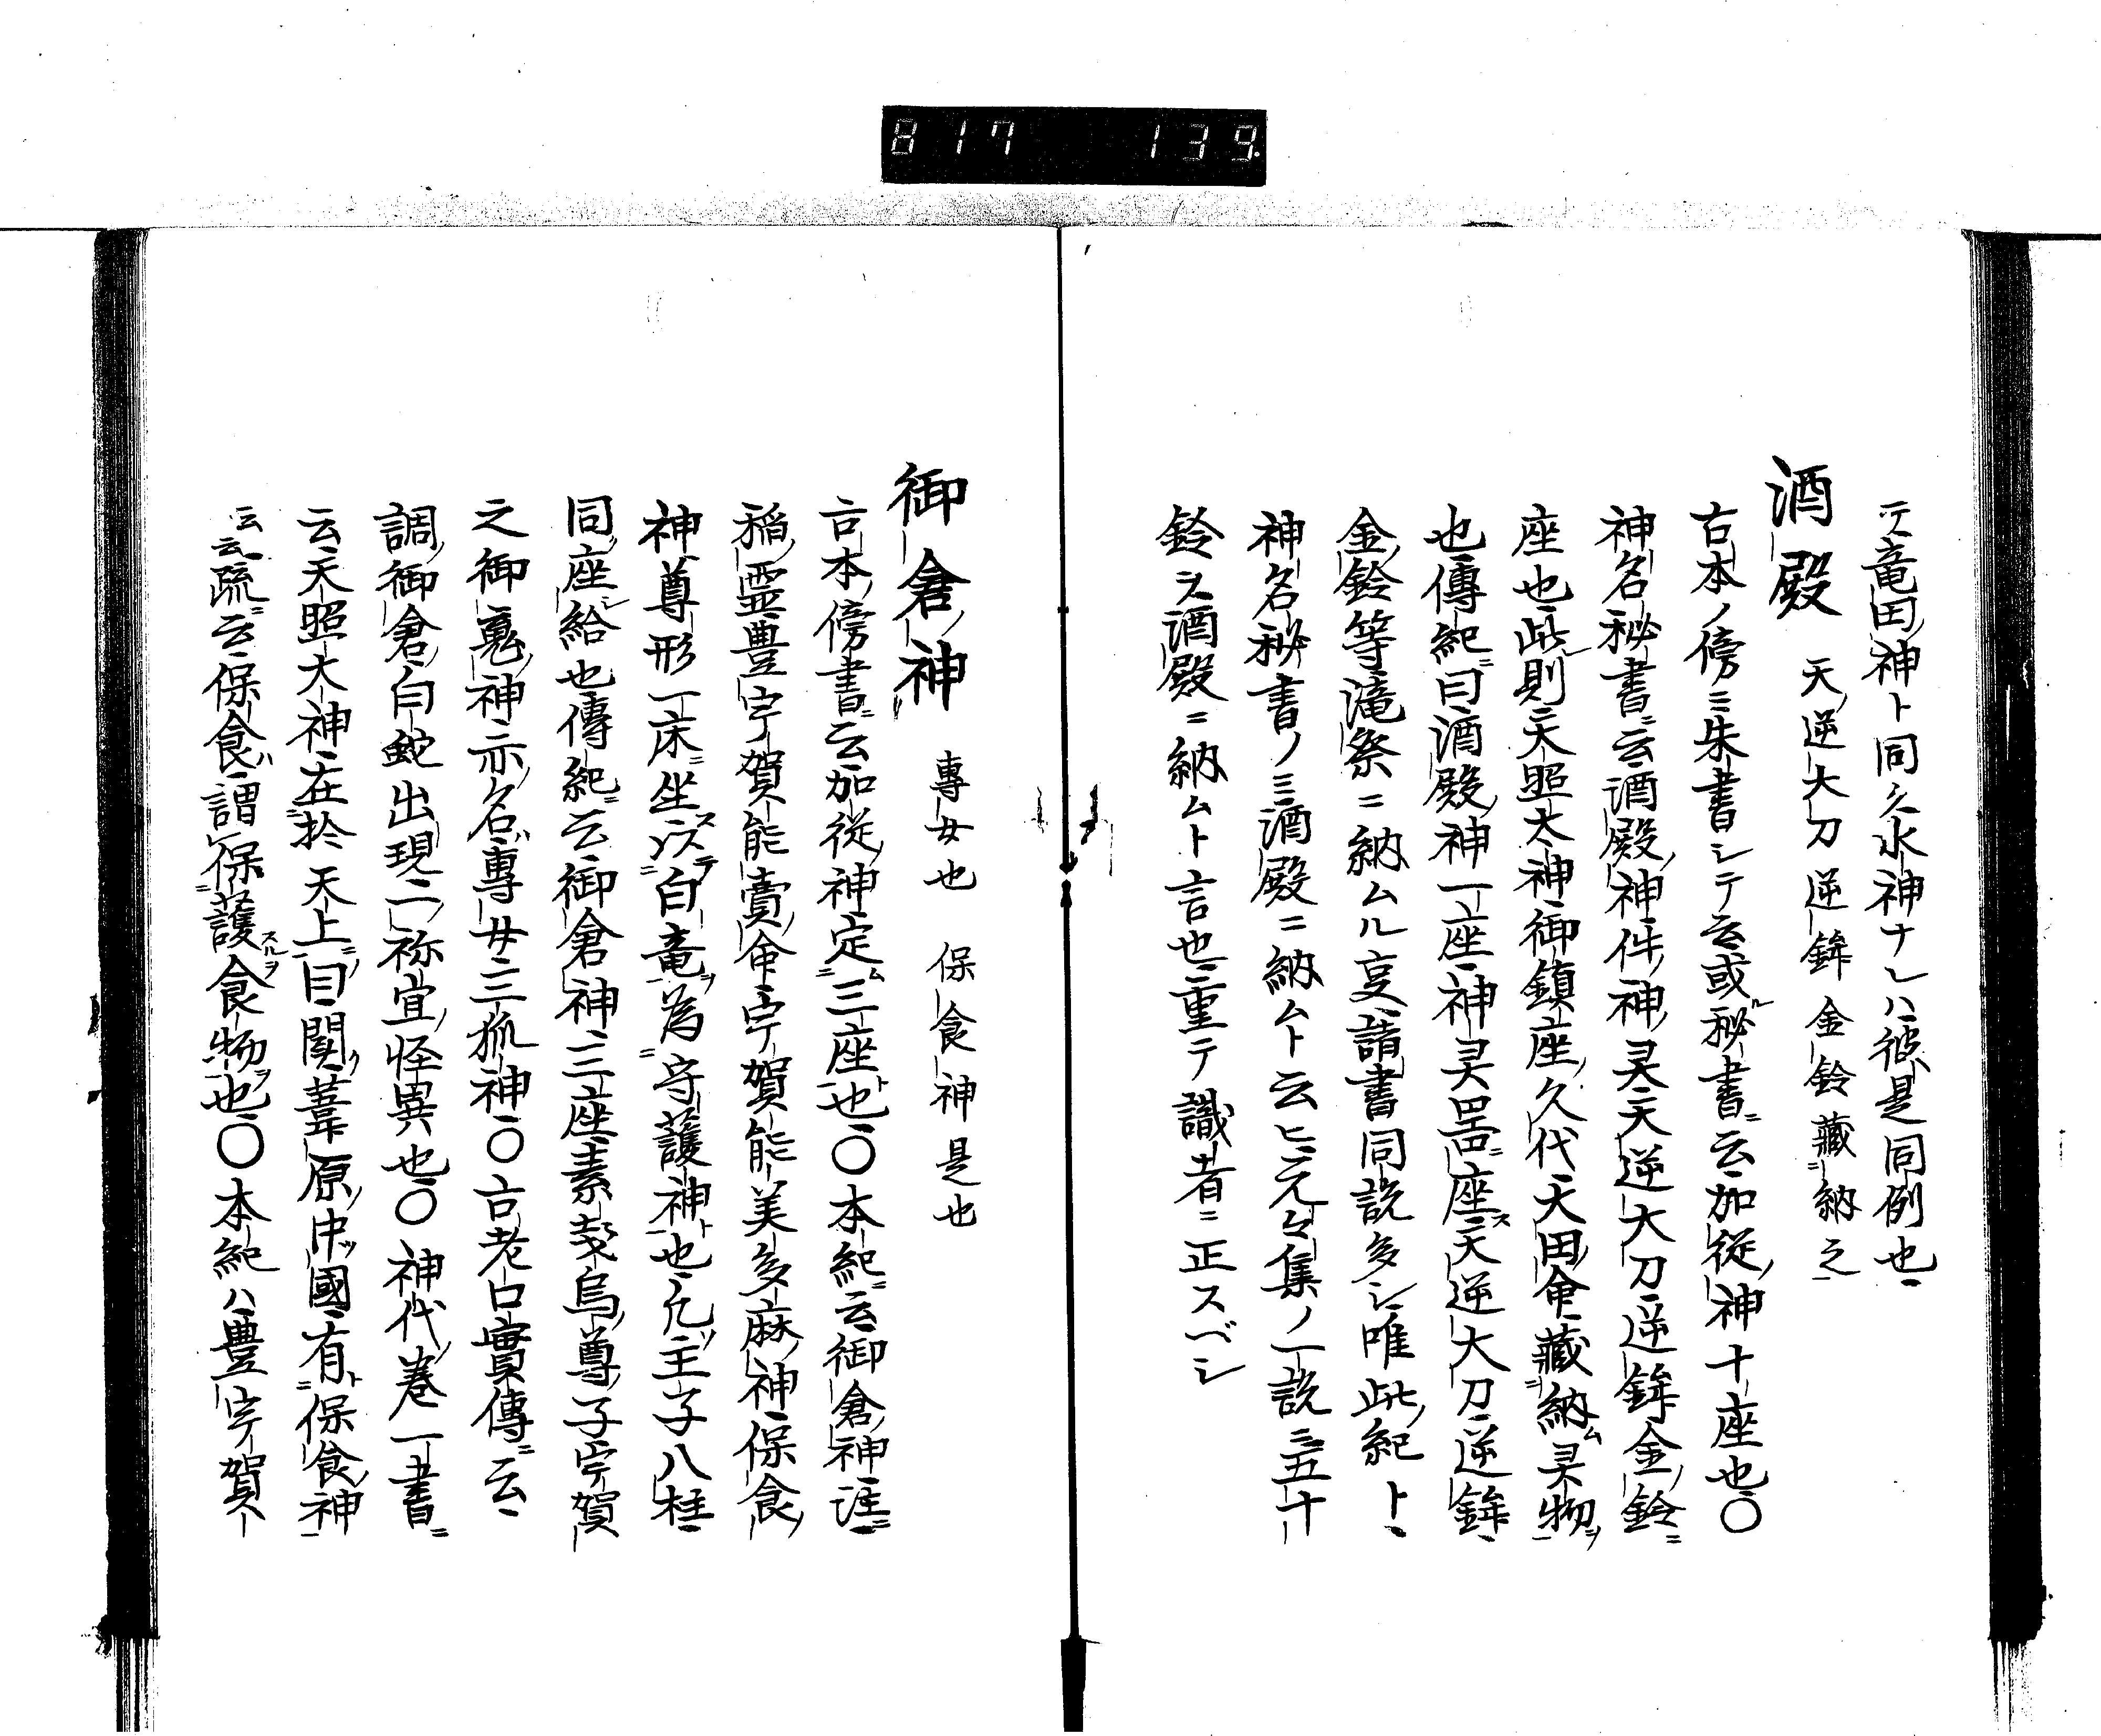 817 139
テ竜田神ト同ク水神ナレハ彼是同例也
酒殿 天逆大刀 逆鉾 金鈴藏納之
古本ノ傍ニ朱書シテ云或秘書ニ云加従神十座也〇
神名秘書ニ云酒殿神件神灵天逆大刀逆鉾金鈴ニ
座也此則天照太神御鎮座久代天田命藏納ム灵物
也傳紀ニ曰酒殿神一座神灵噐ニ座ス天逆大刀逆鉾
金鈴等滝祭ニ納ムル㕝諸書同説多シ唯此紀ト
神名秘書ノミ酒殿ニ納ムト云ヒ元々集ノ一説ニ五十
鈴ヲ酒殿ニ納ムト言也重テ識者ニ正スベシ
御倉神 專女也 保食神是也
古本傍書ニ云加従神定ム三座ト也〇本紀ニ云御倉神注ニ
稲霊豊宇賀能賣命宇賀能美多麻神保食
神尊形一床ニ坐ス以テ白竜ヲ為守護神ト也凡王子八柱
同座シ給也傳紀ニ云御倉神三座素戔烏尊子宇賀
之御䰟神亦名ハ專女三狐神〇古老口實傳ニ云
調御倉白蛇出現二祢宜怪異也〇神代巻一書ニ
云天照大神在於天上ニ曰聞ク葦原中ツ國ニ有ト保食神
云云疏ニ云保食ハ謂保護スルヲ食物ヲ也〇本紀ハ豊宇賀